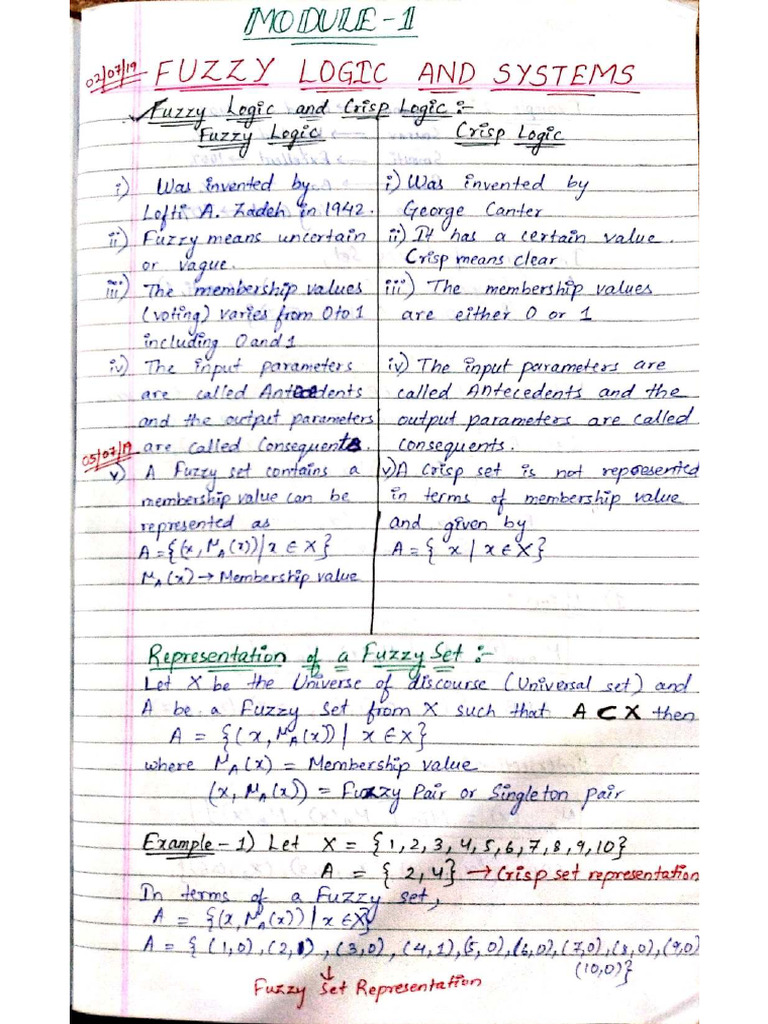 MODULE-1
02/07/19 FUZZY LOGIC AND SYSTEMS
Fuzzy Logic and Crisp Logic :-
Fuzzy Logic
i) Was invented by
Lofti A. Zadeh in 1942.
ii) Fuzzy means uncertain
or vague.
iii) The membership values
(voting) varies from 0 to 1
including 0 and 1
iv) The input parameters
are called Antecedents
and the output parameters
are called Consequents.
05/07/19
v) A Fuzzy set contains a
membership value can be
represented as
A = {(x, μA(x)) | x ∈ X}
μA(x) → Membership value
Crisp Logic
i) Was invented by
George Canter
ii) It has a certain value.
Crisp means clear
iii) The membership values
are either 0 or 1
iv) The input parameters are
called Antecedents and the
output parameters are called
Consequents.
v) A Crisp set is not represented
in terms of membership value
and given by
A = { x | x ∈ X}
Representation of a Fuzzy Set :-
Let X be the Universe of discourse (Universal set) and
A be a Fuzzy set from X such that A ⊂ X then
A = {(x, μA(x)) | x ∈ X}
where μA(x) = Membership value
(x, μA(x)) = Fuzzy Pair or Singleton pair
Example - 1) Let X = {1, 2, 3, 4, 5, 6, 7, 8, 9, 10}
A = { 2, 4} → Crisp set representation
In terms of a Fuzzy set,
A = {(x, μA(x)) | x ∈ X}
A = { (1,0), (2,1), (3,0), (4,1), (5,0), (6,0), (7,0), (8,0), (9,0)
(10,0)}
↓
Fuzzy Set Representation